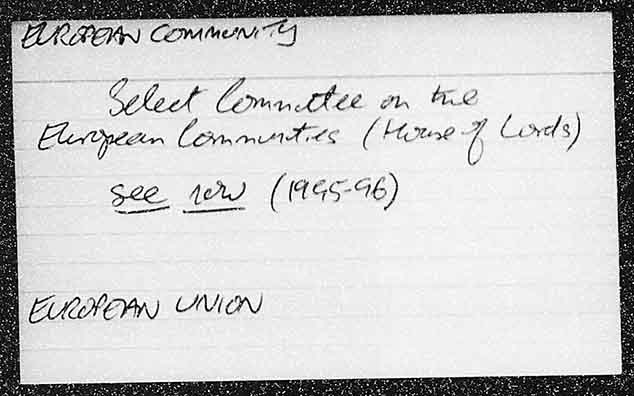 EUROPEAN COMMUNITY
Select Committee on the
European Communities (House of Lords)
see now (1995-96)
EUROPEAN UNION